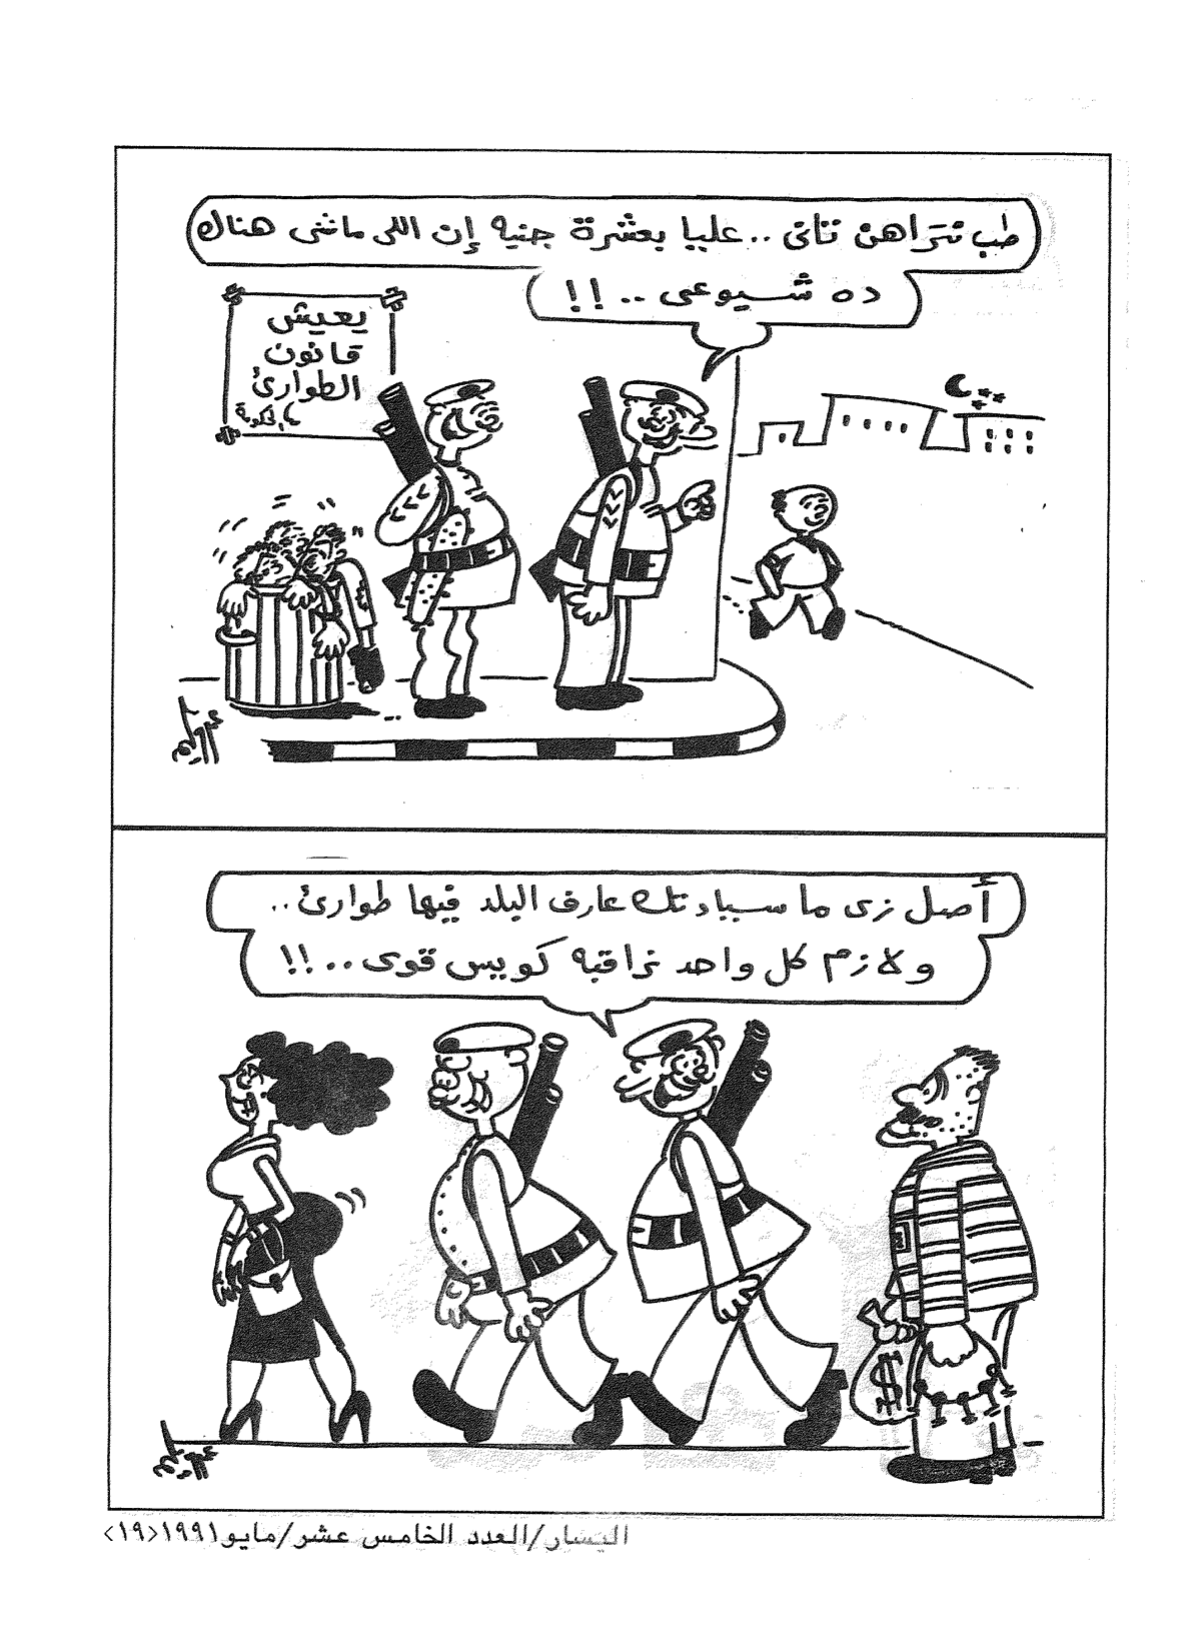 طب نتراهن تانى .. عليا بعشرة جنيه إن اللى ماشى هناك
ده شيوعى .. !!
يعيش
قانون
الطوارئ
أصل زى ما سيادتك عارف البلد فيها طوارئ ..
ولازم كل واحد نراقبه كويس قوى .. !!
$
اليسار/العدد الخامس عشر/مايو١٩٩١<١٩>